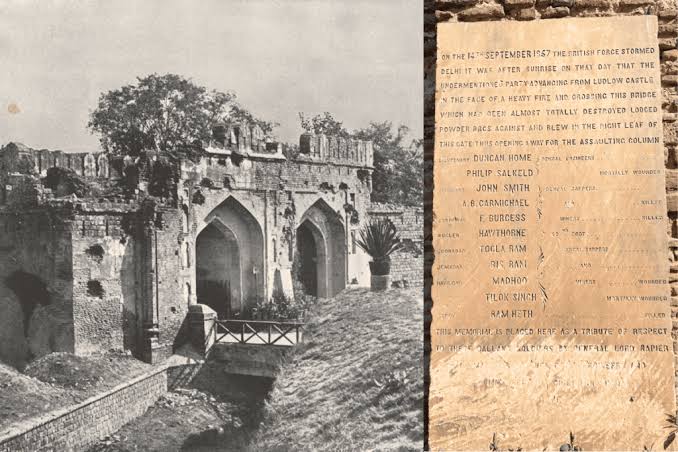 ON THE 14TH SEPTEMBER 1857 THE BRITISH FORCE STORMED
DELHI IT WAS AFTER SUNRISE ON THAT DAY THAT THE
UNDERMENTIONED PARTY ADVANCING FROM LUDLOW CASTLE
IN THE FACE OF A HEAVY FIRE AND CROSSING THIS BRIDGE
WHICH HAD BEEN ALMOST TOTALLY DESTROYED LODGED
POWDER BAGS AGAINST AND BLEW IN THE RIGHT LEAF OF
THIS GATE THUS OPENING A WAY FOR THE ASSAULTING COLUMN
LIEUTENANT DUNCAN HOME ENGINEERS
PHILIP SALKELD MORTALLY WOUNDED
JOHN SMITH SAPPERS
A.B. CARMICHAEL KILLED
F. BURGESS KILLED
BUGLER HAWTHORNE FOOT
TOOLA RAM SAPPERS
JEMADAR BIS RAM AND
HAVILDAR MADHOO WOUNDED
TILOK SINGH MORTALLY WOUNDED
RAM HETH KILLED
THIS MEMORIAL IS PLACED HERE AS A TRIBUTE OF RESPECT
TO THESE GALLANT SOLDIERS BY GENERAL LORD NAPIER